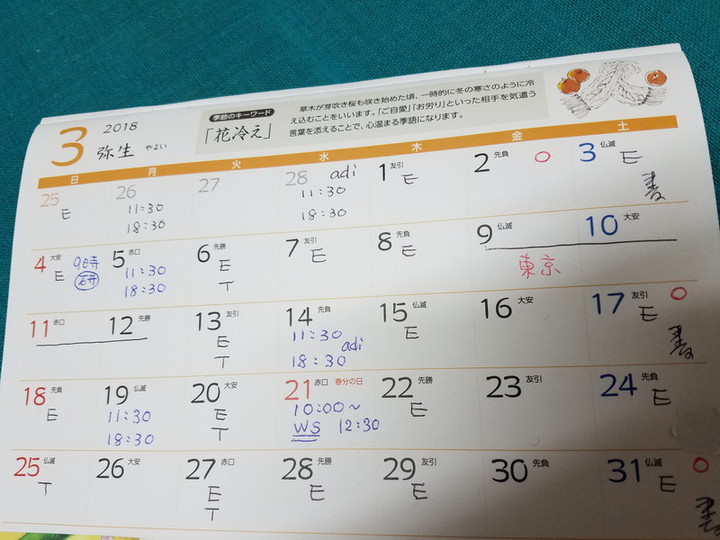 3
2018
弥生 やよい
季節のキーワード
「花冷え」
草木が芽吹き桜も咲き始めた頃、一時的に冬の寒さのように冷
え込むことをいいます。「ご自愛」「お労り」といった相手を気遣う
言葉を添えることで、心温まる季語になります。
日 月 火 水 木 金 土
25 E
26 11:30 18:30
27
28 adi 11:30 18:30
1 友引 E
2 先負 ○
3 仏滅 E
4 大安 E 9時
5 赤口 11:30 18:30
6 先勝 E T
7 友引 E
8 先負 E
9 仏滅
10 大安
東京
11 赤口
12 先勝
13 友引 E T
14 先負 11:30 adi 18:30
15 仏滅 E
16 大安
17 友引 ○ E
18 先負 E
19 仏滅 11:30 18:30
20 大安 E T
21 赤口 春分の日 10:00~ WS 12:30
22 先勝 E
23 友引
24 先負 E
25 仏滅 T
26 大安
27 赤口 E T
28 先勝 E
29 友引 E
30 先負
31 仏滅 ○ E